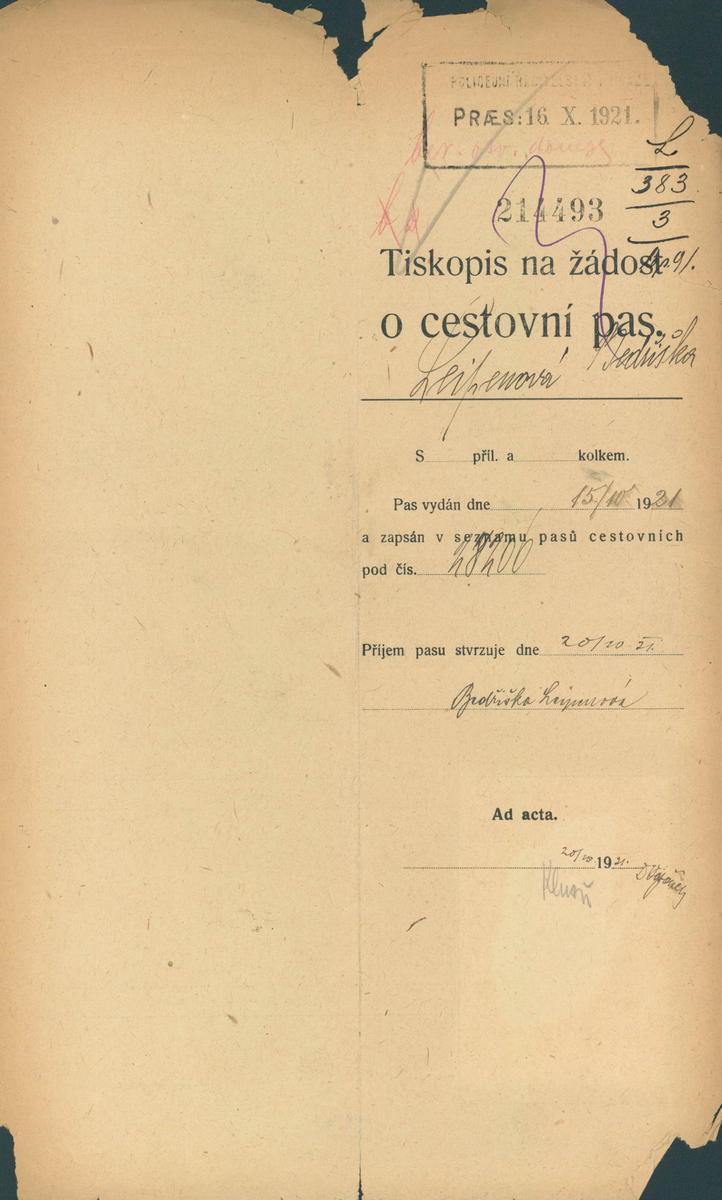 POLICEJNÍ ŘEDITELSTVÍ V PRAZE
PRÆS: 16. X. 1921.
L
383
3
214493
Tiskopis na žádost
o cestovní pas.
Leipenová Bedřiška
S příl. a kolkem.
Pas vydán dne 15/10 1921
a zapsán v seznamu pasů cestovních
pod čís. 28200
Příjem pasu stvrzuje dne 20/10 21.
Bedřiška Leipenová
Ad acta.
20/10 1921.